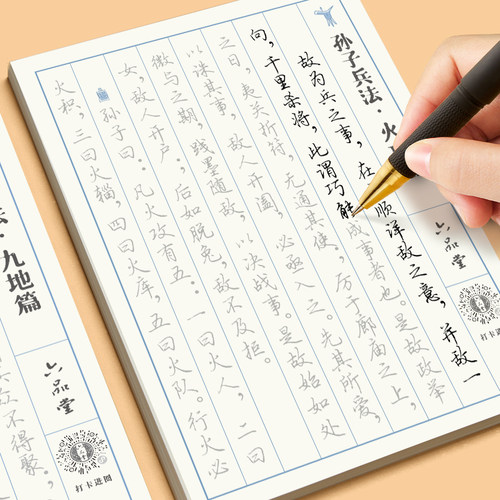 孙子兵法·火
六品堂
打卡进圈
故为兵之事，在顺详敌之意，并敌一
向，千里杀将，此谓巧能成事者也。是故政举
之日，夷关折符，无通其使，厉于廊庙之上，
以诛其事，敌人开阖，必亟入之。先其所爱，
微与之期，践墨随敌，以决战事。是故始如处
女，敌人开户；后如脱兔，敌不及拒。
孙子曰：凡火攻有五：一曰火人，二曰
火积，三曰火辎，四曰火库，五曰火队。行火必
·九地篇
六品堂
打卡进圈
众不得聚，